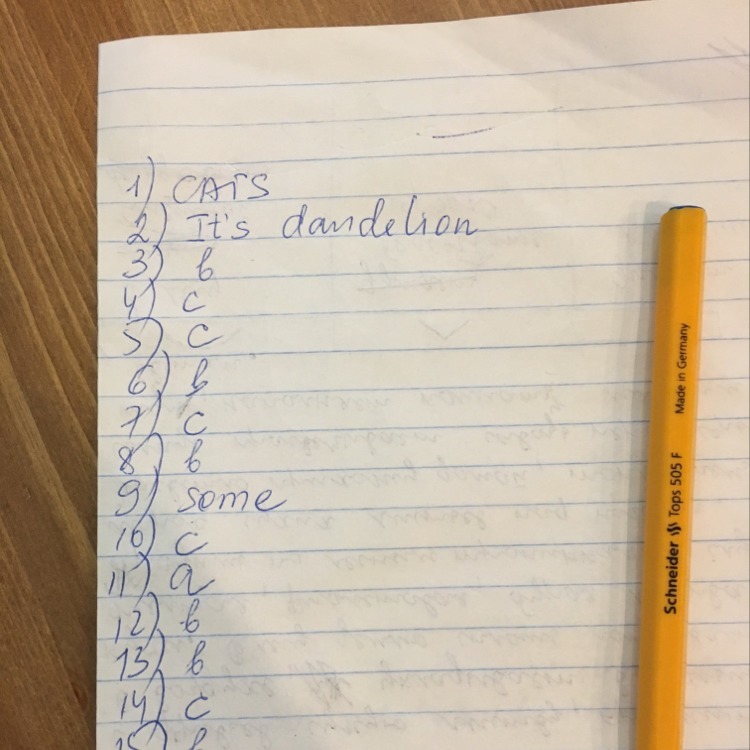 1) CATS
2) It's dandelion
3) b
4) c
5) c
6) b
7) c
8) b
9) some
10) c
11) a
12) b
13) b
14) c
15) b
Schneider Tops 505 F Made in Germany